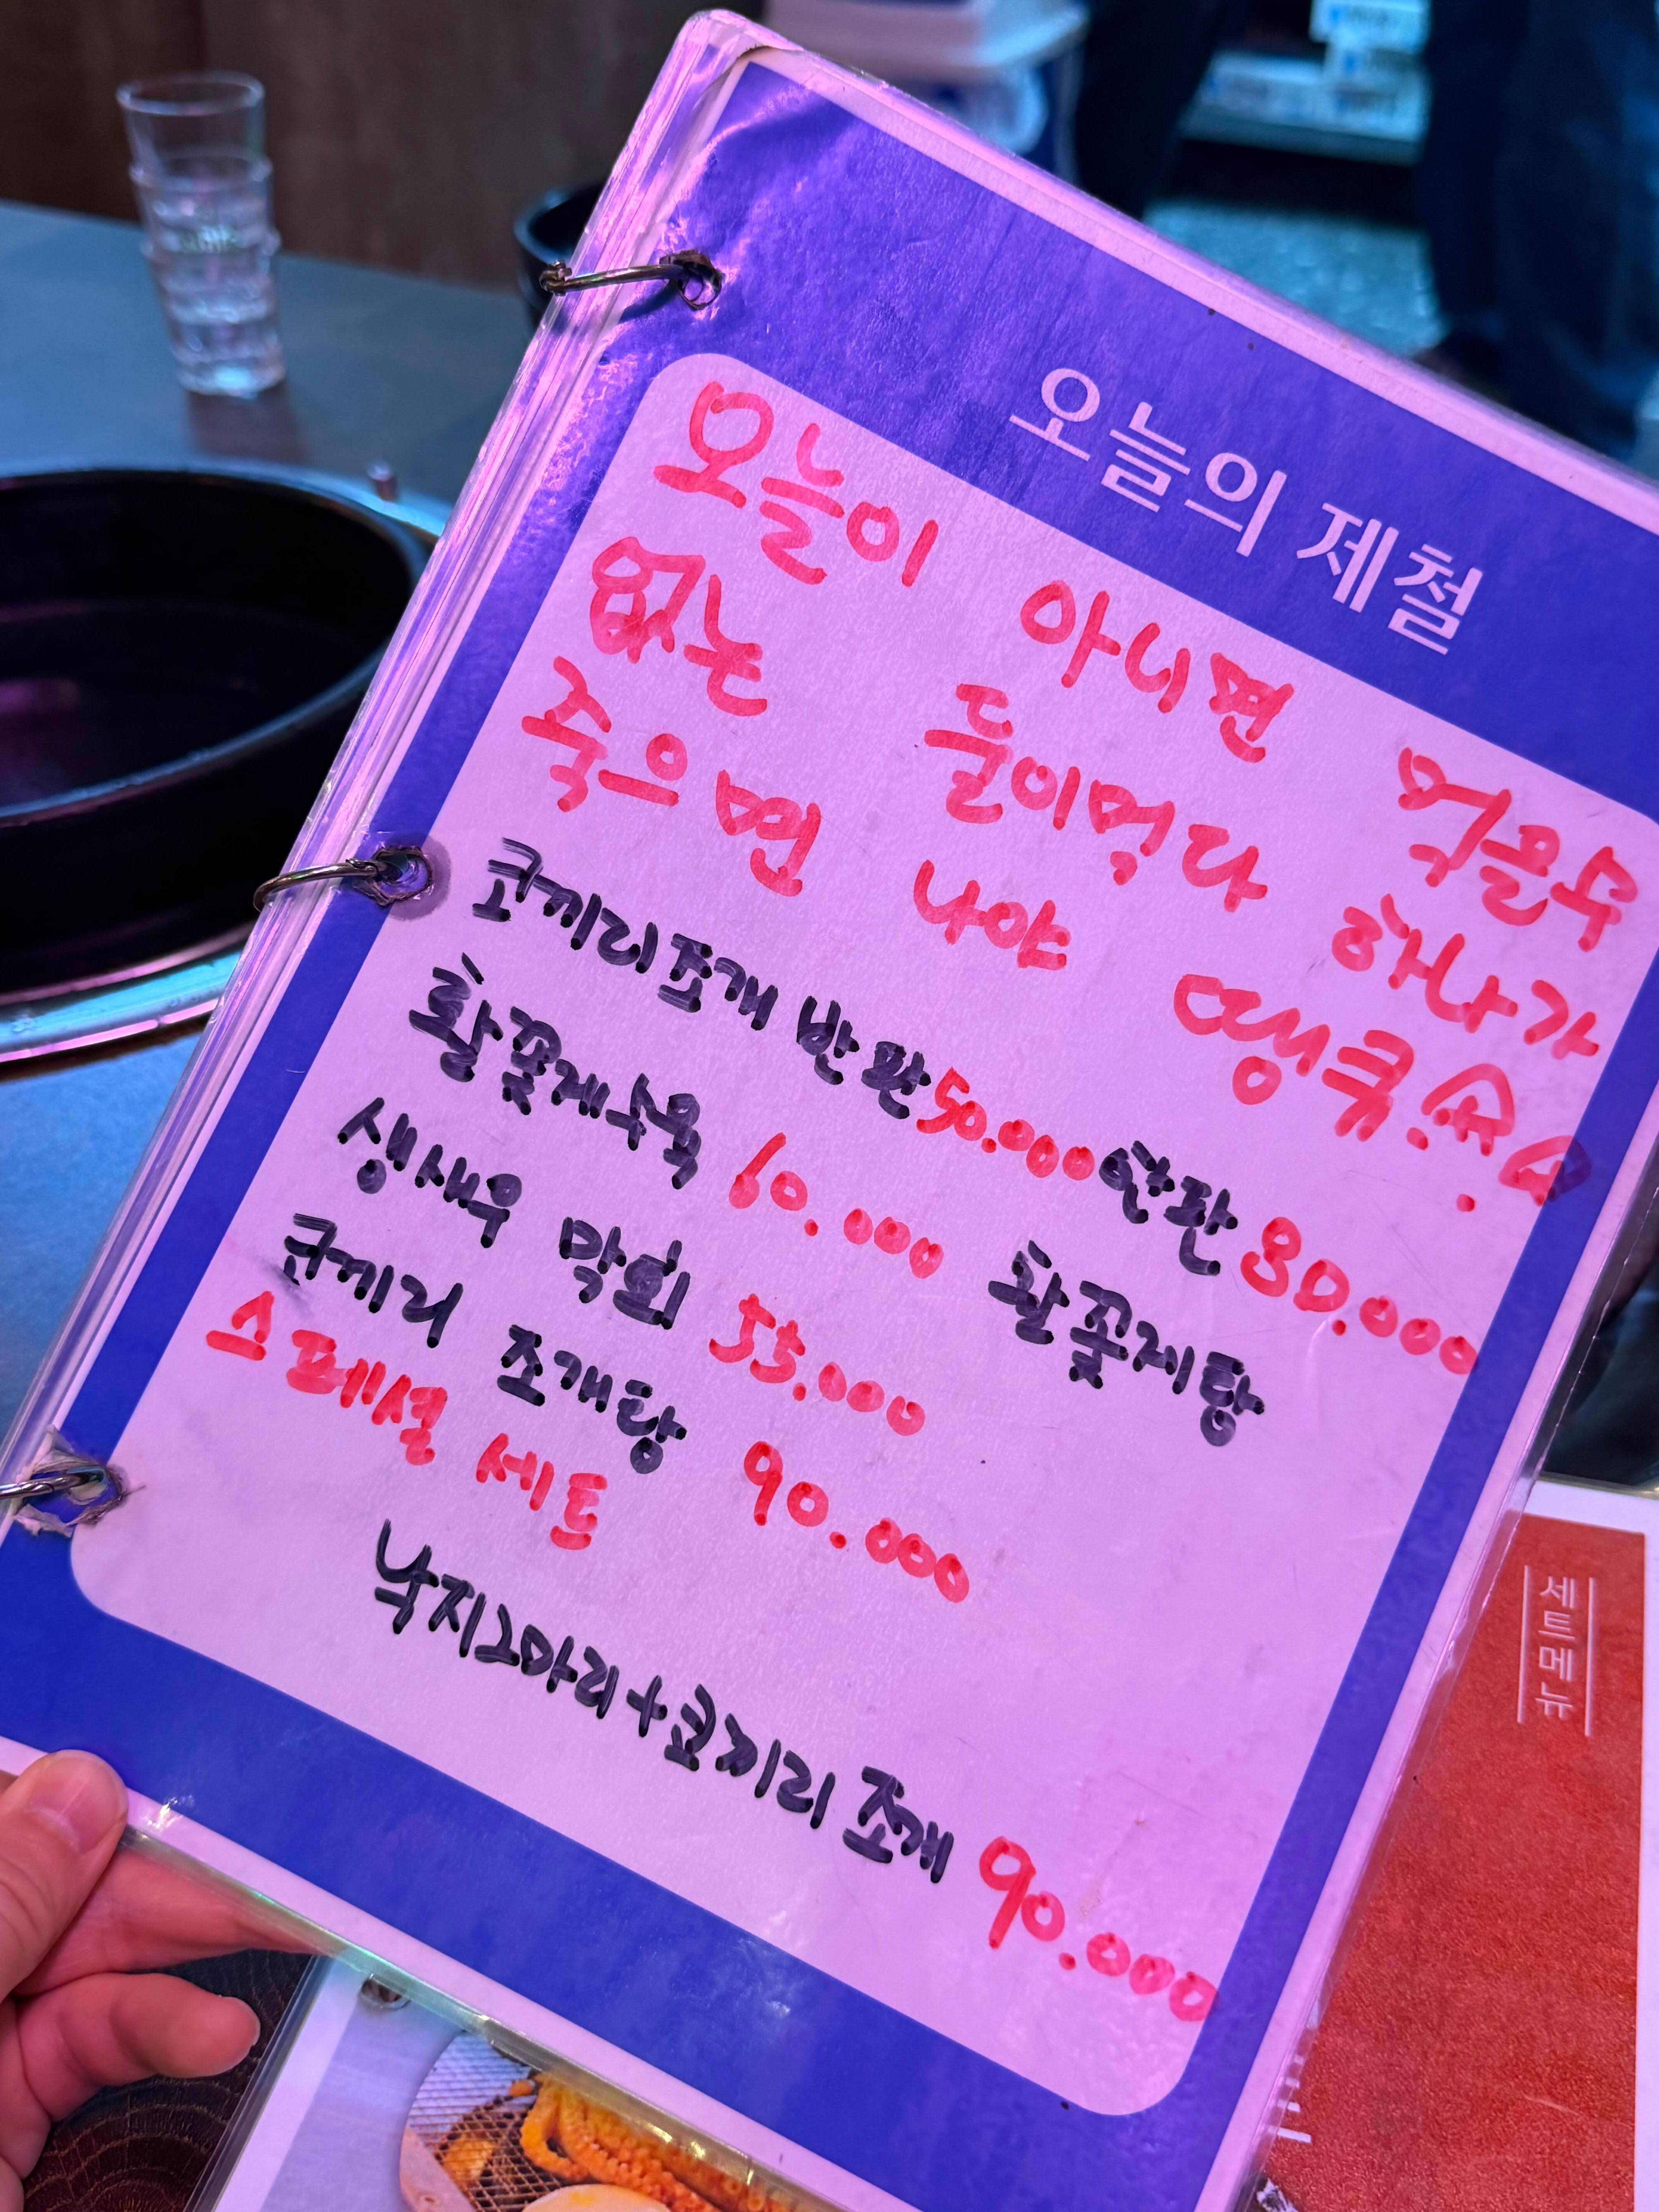 오늘의 제철
오늘이 아니면 먹을수
없는 둘이먹다 하나가
죽으면 나야 땡큐.
코끼리조개 반판 50.000 한판 80.000
활꽃게수육 60.000 활꽃게탕
생새우 막회 55.000
코끼리 조개탕 90.000
스페셜 세트
낙지2마리+코끼리 조개 90.000
세트메뉴